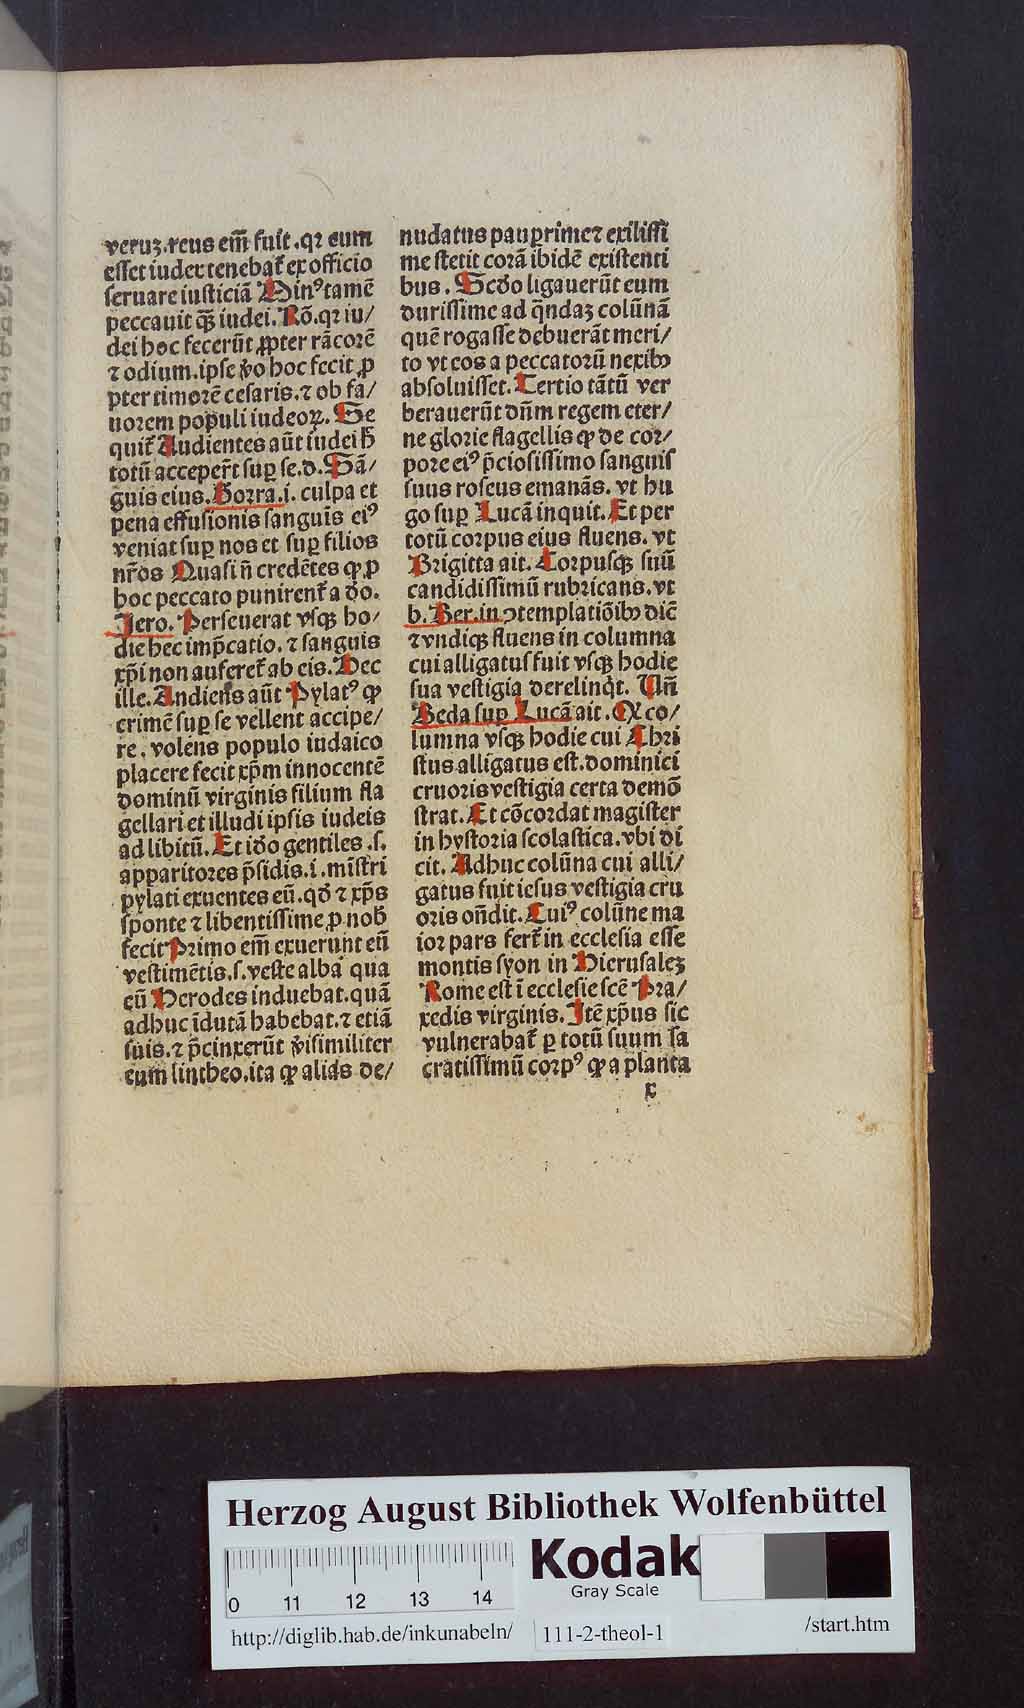 veruʒ.reus em̄ fuit.qꝛ cum
eſſet iudex tenebat̄ ex officio
ſeruare iuſticiā Minꝰ tamē
peccauit qȝ iudei. Rō.qꝛ iu/
dei hoc fecerūt ꝓpter rācorē
⁊ odium.ipſe v̄o hoc fecit ꝓ
pter timorē ceſaris.⁊ ob fa/
uorem populi iudeoꝝ. Se
quit̄ Audientes aūt iudei h̄
totū acceper̄t ſuꝑ ſe.d. Sā/
guis eius. Gorra.i. culpa et
pena effuſionis ſanguīs eiꝰ
veniat ſuꝑ nos et ſuꝑ filios
nr̄os Quaſi n̄ credētes ꝙ ꝓ
hoc peccato punirent̄ a do.
Jero. Perſeuerat vſqȝ ho/
die hec imp̄catio. ⁊ ſanguis
xp̄i non auferet̄ ab eis. Hec
ille. Andiens aūt Pylatꝰ ꝙ
crimē ſuꝑ ſe vellent accipe/
re. volens populo iudaico
placere fecit xp̄m innocentē
dominū virginis filium fla
gellari et illudi ipſis iudeis
ad libitū. Et iđo gentiles .ſ.
apparitores p̄ſidis.i.miſtri
pylati exuentes eū.qđ ⁊ xp̄s
ſponte ⁊ libentiſſime ꝓ nob̄
fecit Primo em̄ exuerunt eū
veſtimētis.ſ.veſte alba qua
eū Herodes induebat.quā
adhuc īdutā habebat.⁊ etiā
ſuis.⁊ p̄cinxerūt v̄iſimiliter
eum lintheo.ita ꝙ alias de/
nudatus pauꝑrime⁊ exiliſſi
me ſtetit corā ibidē exiſtenti
bus. Scđo ligauerūt eum
duriſſime ad q̄ndaʒ colūnā
quē rogaſſe debuerāt meri/
to vt eos a peccatorū nexibꝰ
abſoluiſſet. Tertio tātū ver
berauerūt dn̄m regem eter/
ne glorie flagellis ꝙ de cor/
pore eiꝰ p̄cioſiſſimo ſanguis
ſuus roſeus emanās. vt hu
go ſuꝑ Lucā inquit. Et per
totū corpus eius fluens. vt
Brigitta ait. Corpuſqȝ ſuū
candidiſſimū rubricans. vt
b. Ber. in ↄtemplatiōibꝰ dic̄
⁊ vndiqȝ fluens in columna
cui alligatuſ fuit vſqȝ hodie
ſua veſtigia derelinq̄t. Un̄
Beda ſuꝑ Lucā ait. Ex co/
lumna vſqȝ hodie cui Chri
ſtus alligatus eſt.dominici
cruoris veſtigia certa demō
ſtrat. Et cōcordat magiſter
in hyſtoria ſcolaſtica.vbi di
cit. Adhuc colūna cui alli/
gatus fuit ieſus veſtigia cru
oris on̄dit. Cuiꝰ colūne ma
ior pars fert̄ in eccleſia eſſe
montis ſyon in Hieruſaleʒ
Rome eſt ī eccleſie ſcē Pra/
xedis virginis. Itē xp̄us ſic
vulnerabat̄ ꝑ totū ſuum ſa
cratiſſimū corpꝰ ꝙ a planta
x
Herzog August Bibliothek Wolfenbüttel
Kodak
Gray Scale
0 11 12 13 14
http://diglib.hab.de/inkunabeln/ 111-2-theol-1 /start.htm